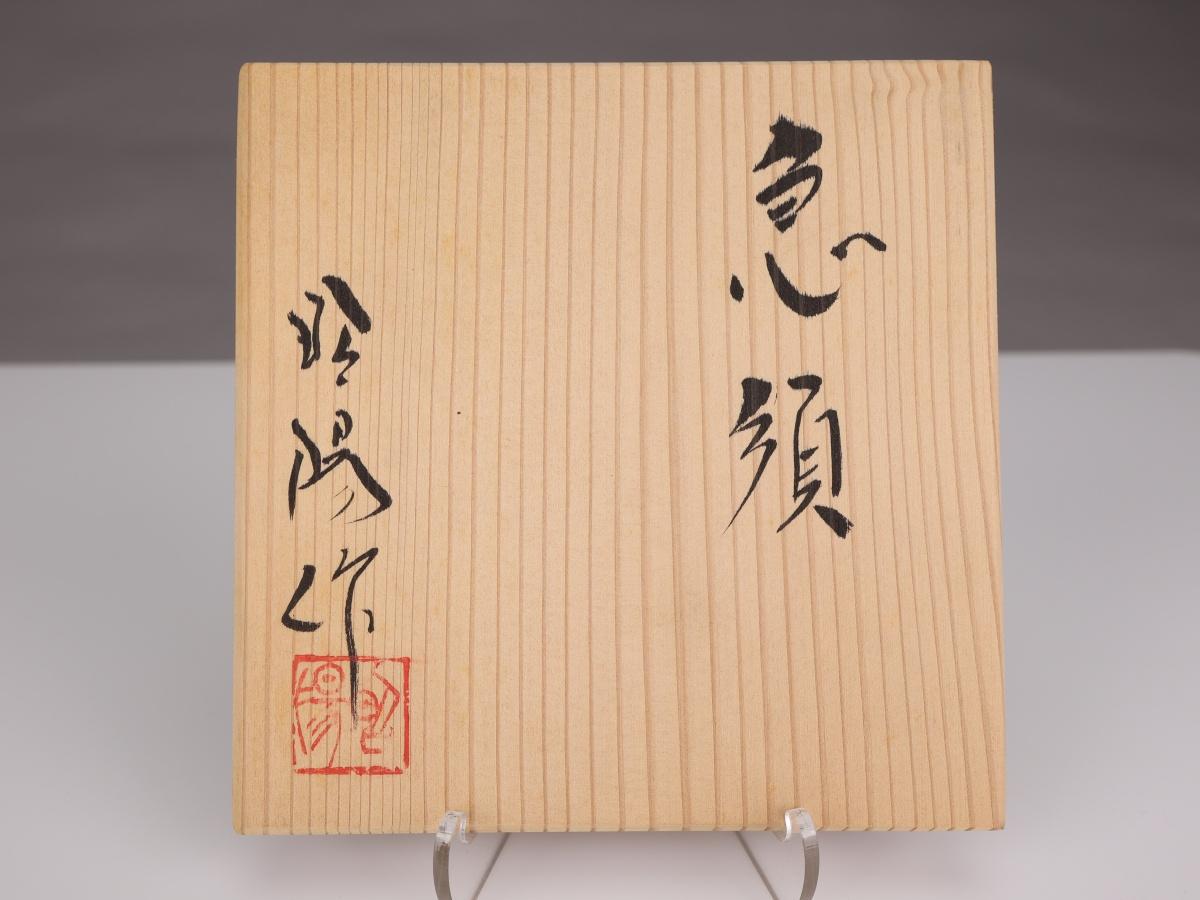 急須
陽作